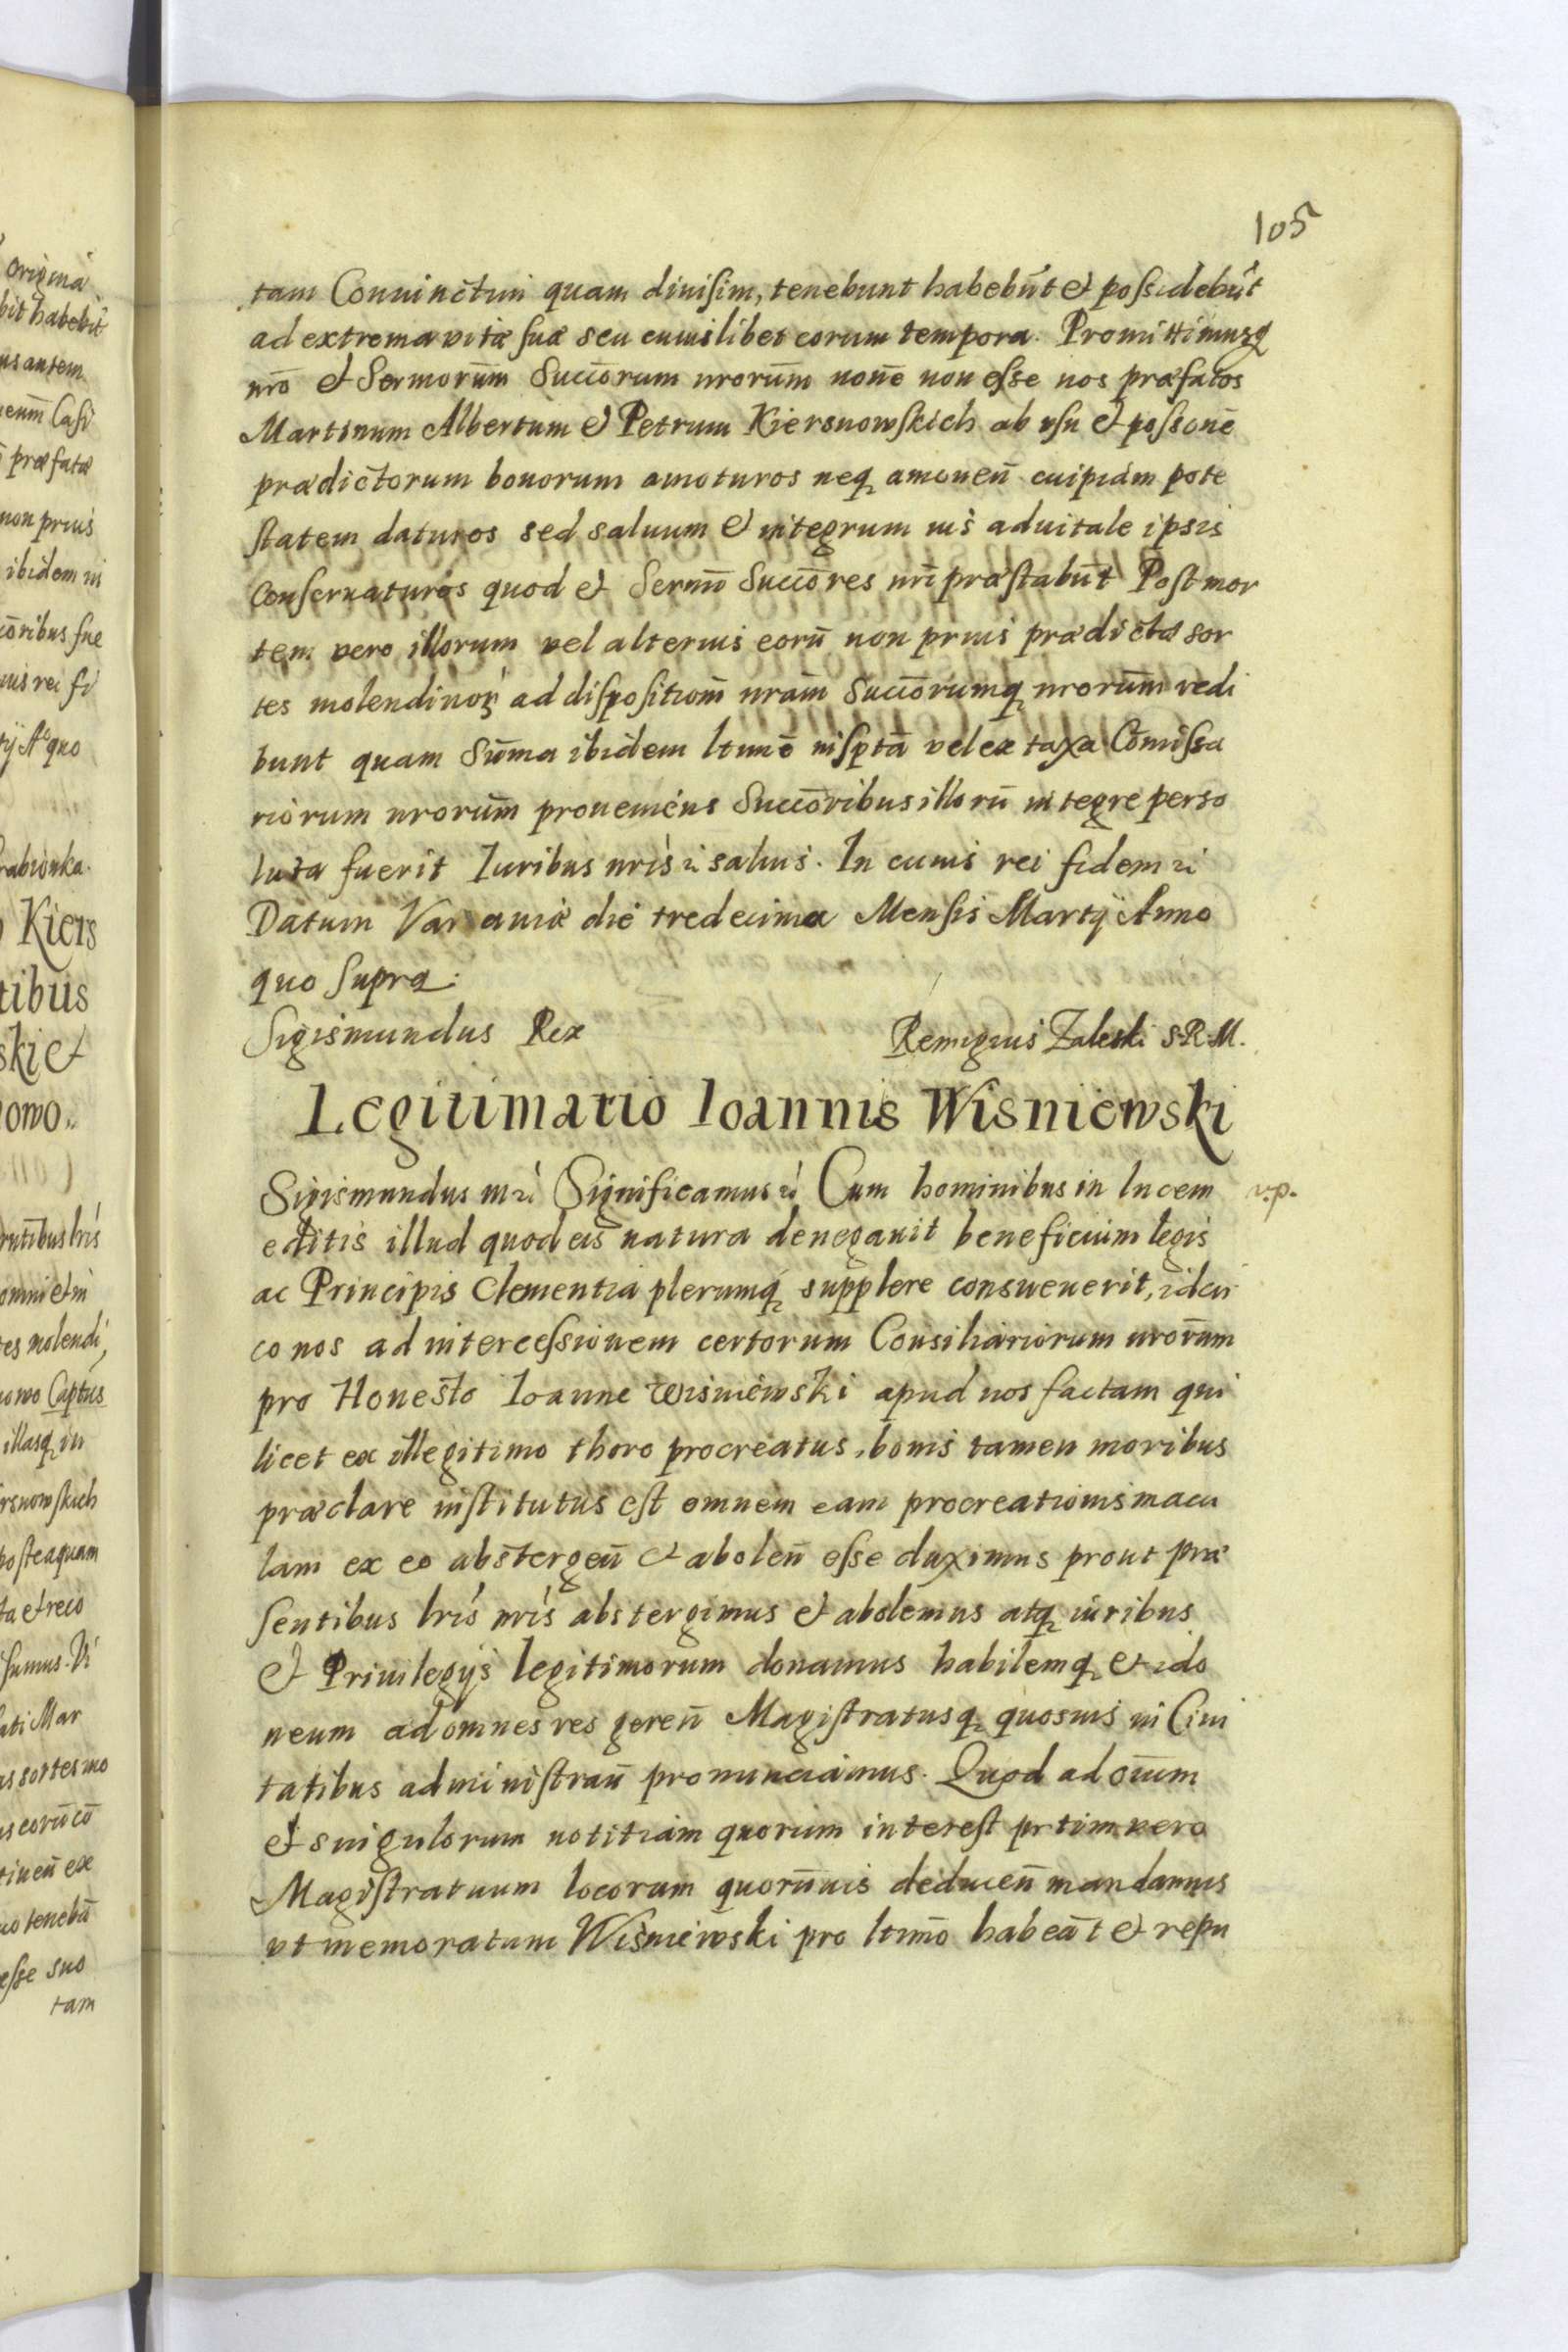 105
tam Conuinctim quam diuisim, tenebunt habebūt et possidebūt
ad extrema vitæ suæ seu cuiuslibet eorum tempora. Promittimusq
nrō et Sermorum̄ Succorum nrorum̄ nonē non esse nos præfatos
Martinum Albertum et Petrum Kiersnowskich ab vsu et possonē
prædictorum bonorum amoturos neq amouen̄ cuipiam pote
statem daturos sed saluum et integrum ius aduitale ipsis
Conseruaturos quod et Sermī Succōres nrī præstabūt Post mor
tem vero illorum vel alterius eorū non prius prædictæ sor
tes molendinoꝝ ad dispositiom̄ nram̄ Succōrumq nrorum̄ redi
bunt quam Sūma ibidem ltimē inscptā vel ex taxa Cōmissa
riorum nrorum̄ proueniens Succōribus illorū integre perso
luta fuerit Iuribus nris ꝛ saluis. In cuius rei fidem ꝛ
Datum Varsauiæ die tredecima Mensis Martÿ Anno
quo supra.
Sigismundus Rex Remigius Zaleski S.R.M.
Legitimatio Ioannis Wisniewski
Sigismundus III ꝛ Significamus ꝛ Cum hominibus in lucem v.p.
editis illud quod eis natura denegauit beneficium legis
ac Principis Clementia plerumq supplere consueuerit, idcir
co nos ad intercessionem certorum Consiliariorum nrorum̄
pro Honesto Ioanne Wisniewski apud nos factam qui
licet ex illegitimo thoro procreatus, bonis tamen moribus
præclare institutus est omnem eam procreationis macu
lam ex eo abstergen̄ et abolen̄ esse duximus prout præ
sentibus lris nris abstergimus et abolemus atq iuribus
et Priuilegÿs legitimorum donamus habilemq et ido
neum ad omnes res geren̄ Magistratusq quosuis in Ciui
tatibus administran̄ pronunciamus. Quod ad oīum
et singulorum notitiam quorum interest prtim vero
Magistratuum locorum quorūuis deducen̄ mandamus
vt memoratum Wisniewski pro ltimō habeāt et repu